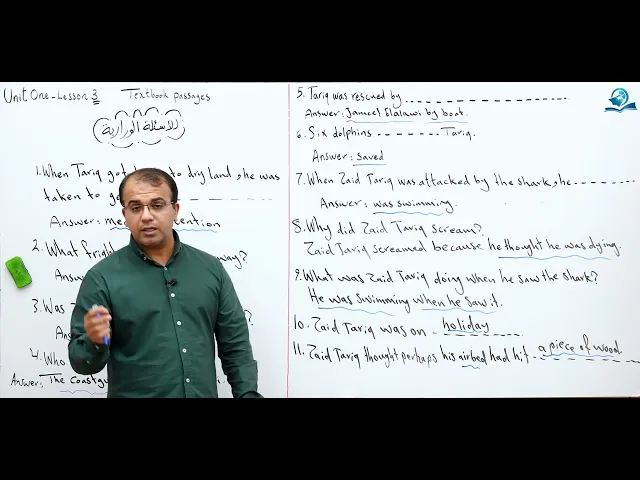 Unit One - Lesson 3 Textbook passages
(الاسئلة الوزارية)
1. When Tariq got to dry land, he was
taken to
Answer: me ntion
2. What frigh way?
Answ
3. Was
An
4. Who
Answer: The coastgu
5. Tariq was rescued by ------------
Answer: Jameel Elalawi by boat.
6. Six dolphins ------- Tariq.
Answer: saved
7. When Zaid Tariq was attacked by the shark, he ------
Answer: was swimming.
8. Why did Zaid Tariq scream?
Zaid Tariq screamed because he thought he was dying.
9. What was Zaid Tariq doing when he saw the shark?
He was swimming when he saw it.
10. Zaid Tariq was on holiday
11. Zaid Tariq thought perhaps his airbed had hit a piece of wood.